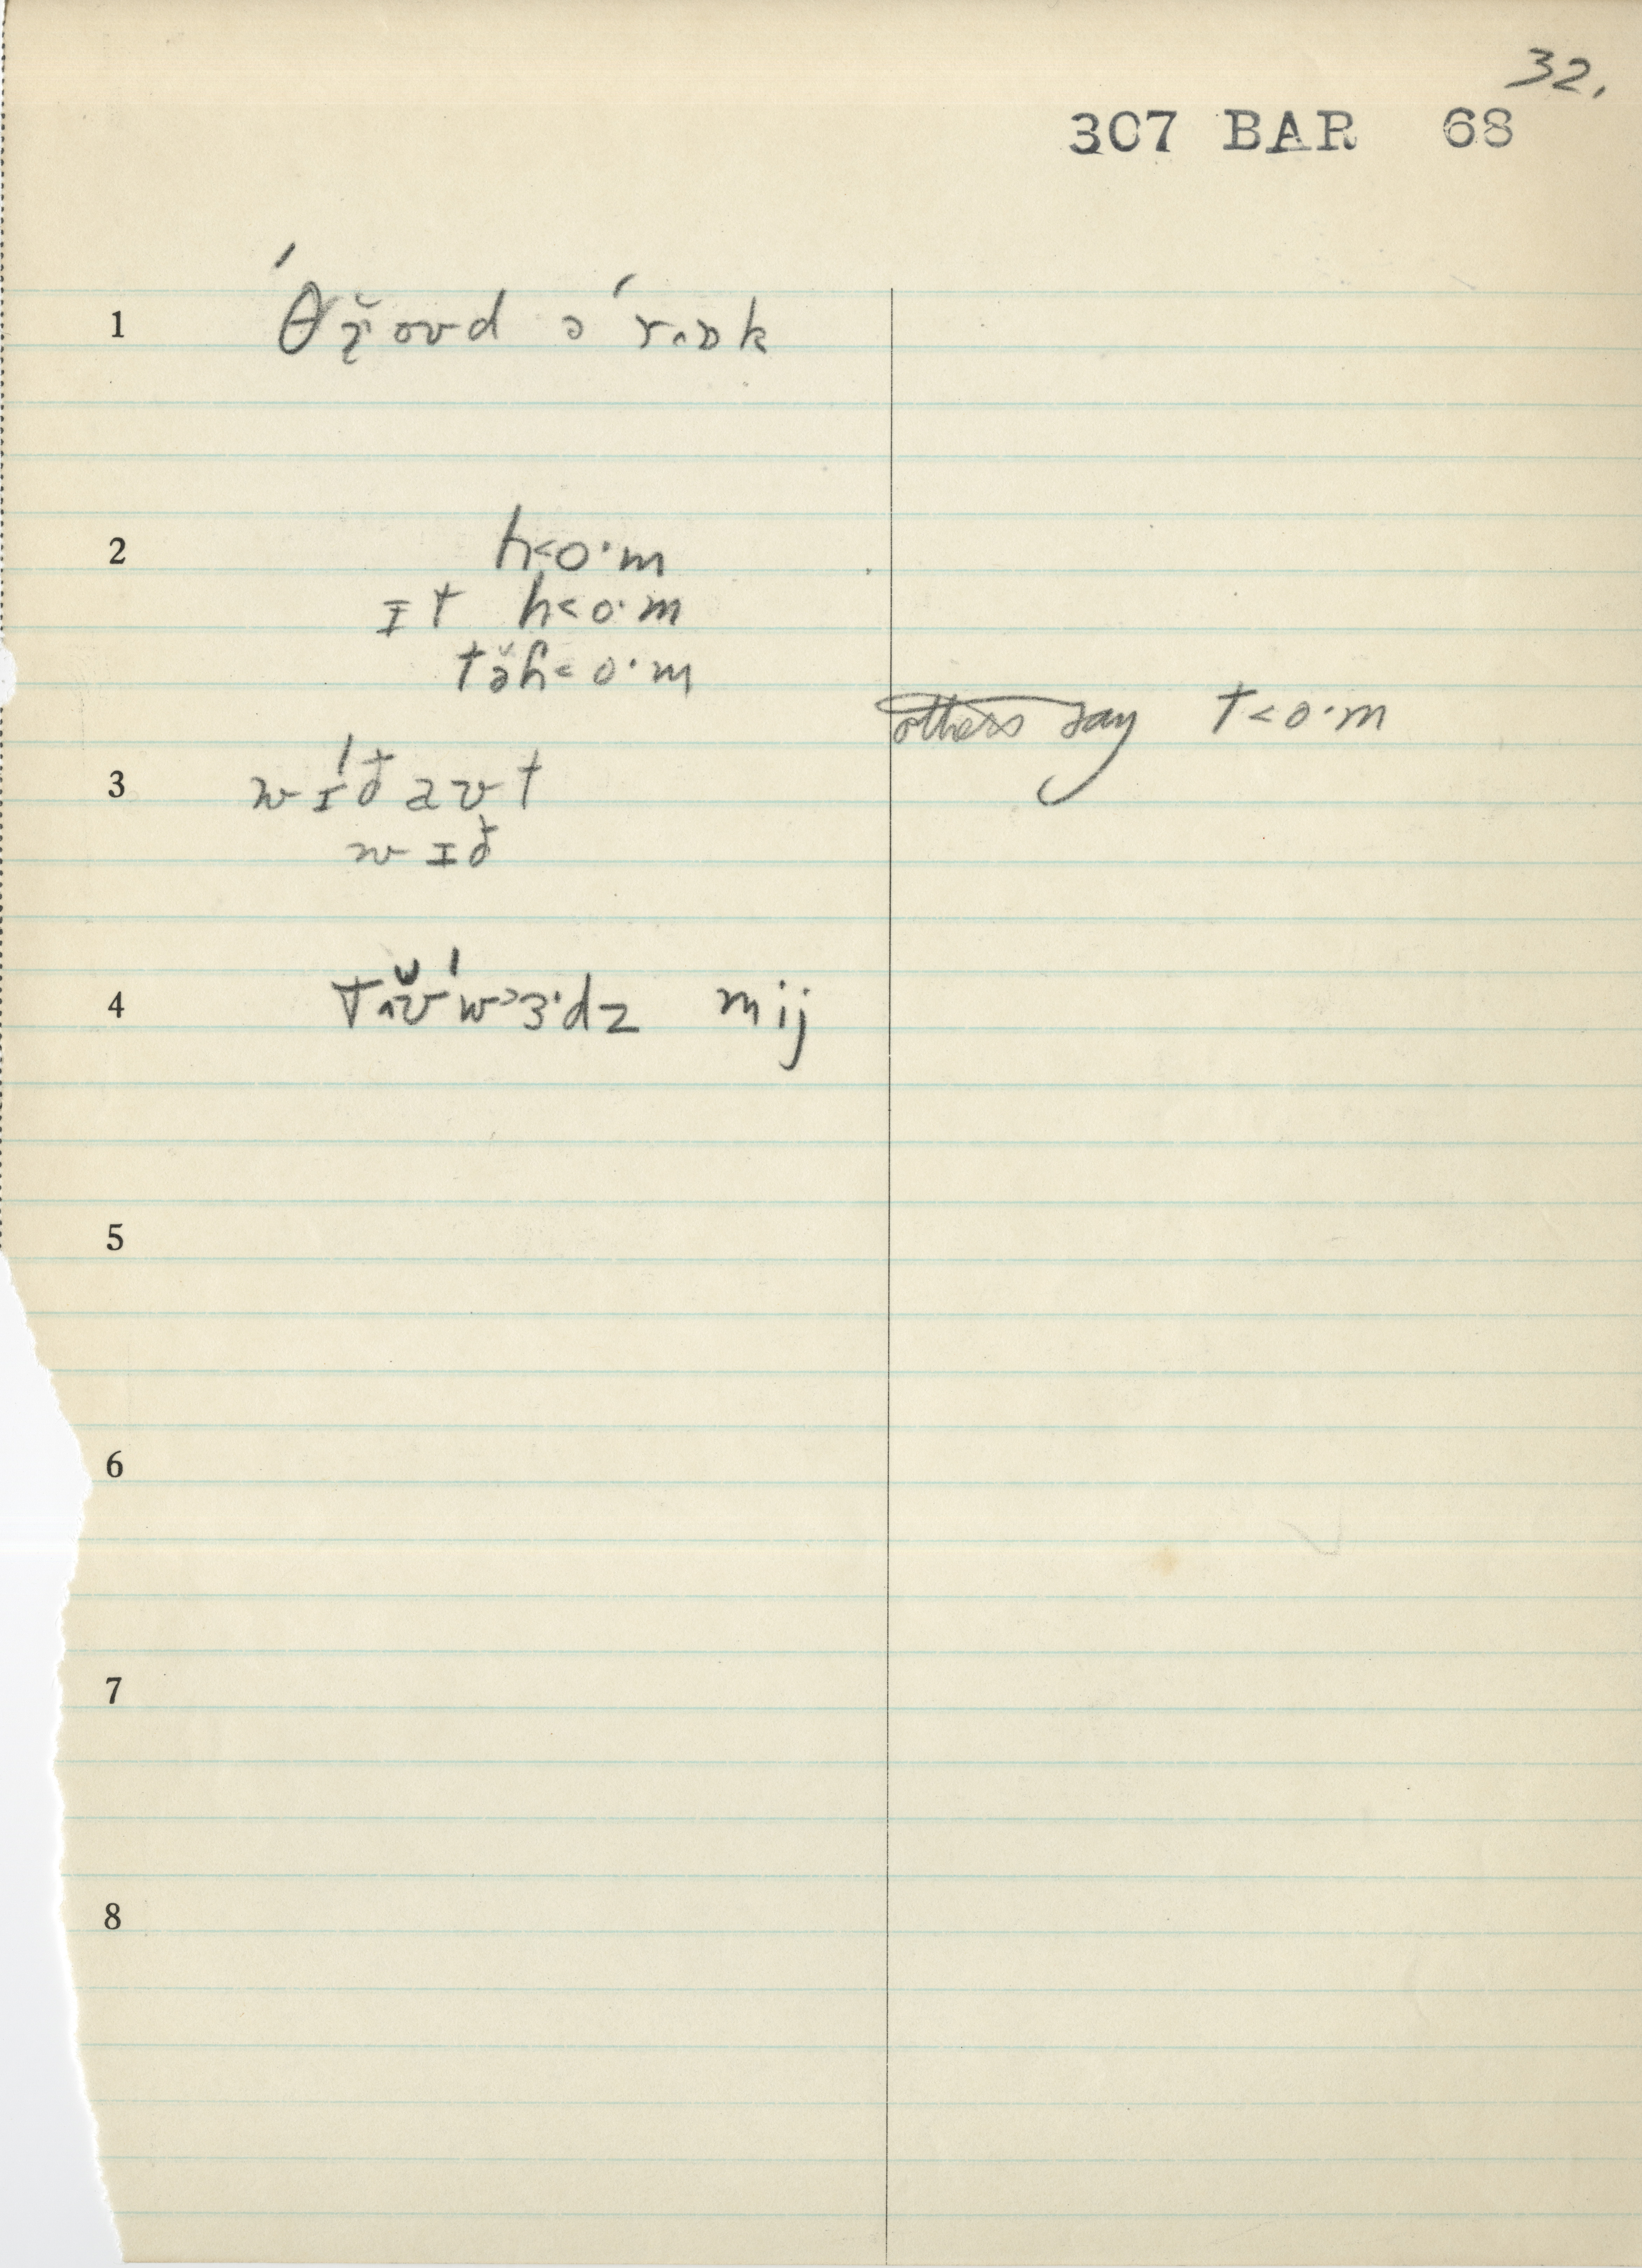 32.
307 BAR 68
1 ˈθɹ̆oʊd əˈrʌŋk
2 h<o·m
ɪt h<o·m
tə̆h<o·m
others say t<o·m
3 wɪˈðaʊt
wɪð
4 tʌʊ̆ˈw>ɜ·dz mij
5
6
7
8